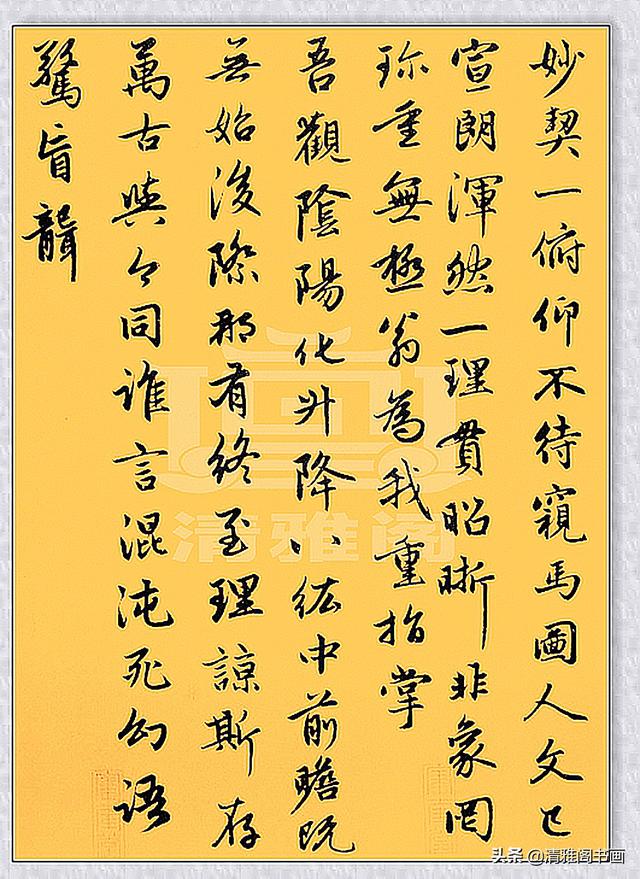 妙契一俯仰不待窺馬圖人文已
宣朗渾然一理貫昭晰非象罔
珍重無極翁為我重指掌
吾觀陰陽化升降八紘中前瞻既
無始後際那有終至理諒斯存
萬古與今同誰言混沌死幻語
驚盲聾
清雅阁
头条 @清雅阁书画